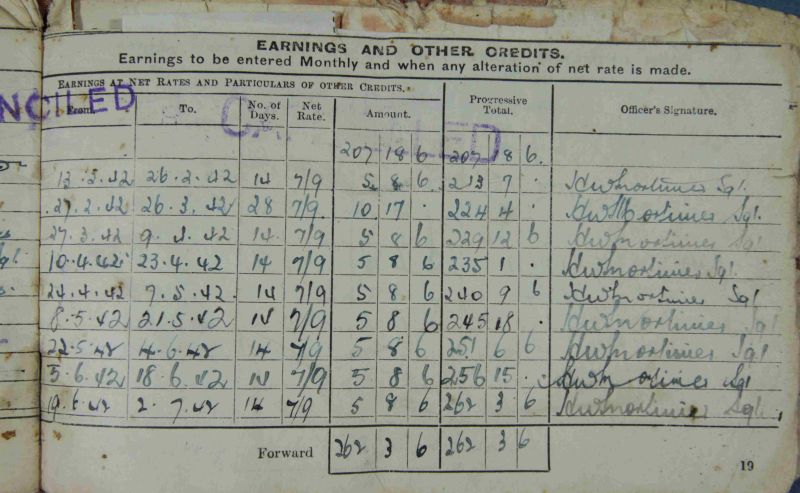 EARNINGS AND OTHER CREDITS.
Earnings to be entered Monthly and when any alteration of net rate is made.
EARNINGS AT NET RATES AND PARTICULARS OF OTHER CREDITS.
From. To. No. of Days. Net Rate. Amount. Progressive Total. Officer's Signature.
NCILED
207 18 6 207 18 6
13.2.42 26.2.42 14 7/9 5 8 6 213 7 . HW Mortimer Sgt.
27.2.42 26.3.42 28 7/9 10 17 . 224 4 . HW Mortimer Sgt.
27.3.42 9.4.42 14 7/9 5 8 6 229 12 6 HW Mortimer Sgt
10.4.42 23.4.42 14 7/9 5 8 6 235 1 . HW Mortimer Sgt.
24.4.42 7.5.42 14 7/9 5 8 6 240 9 6 HW Mortimer Sgt
8.5.42 21.5.42 14 7/9 5 8 6 245 18 . HW Mortimer Sgt
22.5.42 4.6.42 14 7/9 5 8 6 251 6 6 HW Mortimer Sgt
5.6.42 18.6.42 14 7/9 5 8 6 256 15 . HW Mortimer Sgt
19.6.42 2.7.42 14 7/9 5 8 6 262 3 6 HW Mortimer Sgt.
Forward 262 3 6 262 3 6
19